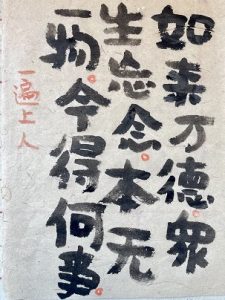 如来万德衆
生忘念本无
一物今得何事
一遍上人